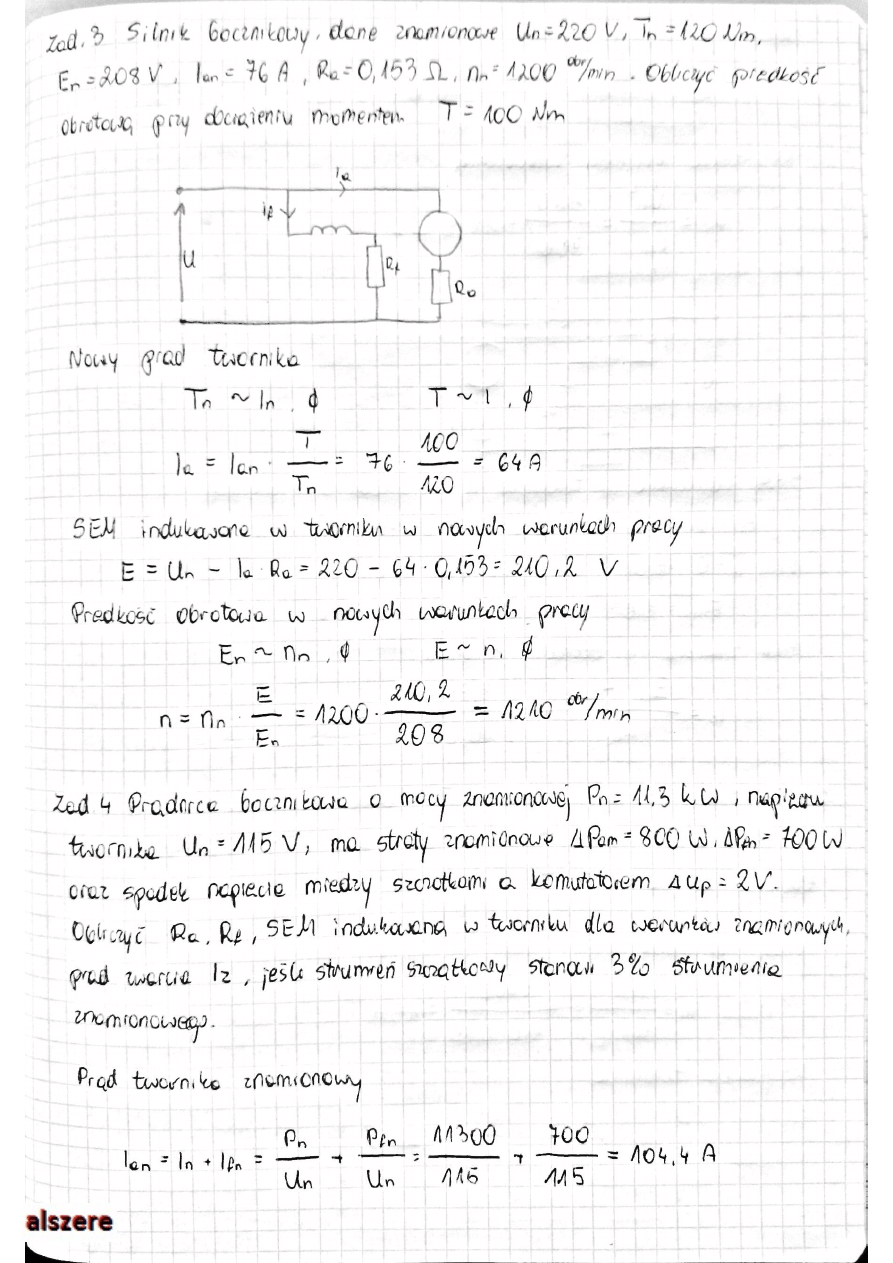 Zad. 3 Silnik bocznikowy, dane znamionowe Un = 220 V, Tn = 120 Nm,
En = 208 V, Ian = 76 A, Ra = 0,153 Ω, nn = 1200 obr/min. Obliczyć prędkość
obrotową przy obciążeniu momentem T = 100 Nm
Ia
If
U
Rf
Ra
Nowy prąd twornika
Tn ~ In, ϕ T ~ I, ϕ
Ia = Ian · T/Tn = 76 · 100/120 = 64 A
SEM indukowana w tworniku w nowych warunkach pracy
E = Un - Ia Ra = 220 - 64 · 0,153 = 210,2 V
Prędkość obrotowa w nowych warunkach pracy
En ~ nn, ϕ E ~ n, ϕ
n = nn · E/En = 1200 · 210,2/208 = 1210 obr/min
Zad 4 Prądnica bocznikowa o mocy znamionowej Pn = 11,3 kW, napięciu
twornika Un = 115 V, ma straty znamionowe ΔPam = 800 W, ΔPfn = 700 W
oraz spadek napięcia między szczotkami a komutatorem ΔUp = 2V.
Obliczyć Ra, Rf, SEM indukowaną w tworniku dla warunków znamionowych,
prąd zwarcia Iz, jeśli strumień szczątkowy stanowi 3% strumienia
znamionowego.
Prąd twornika znamionowy
Ian = In + Ifn = Pn/Un + Pfn/Un = 11300/115 + 700/115 = 104,4 A
alszere